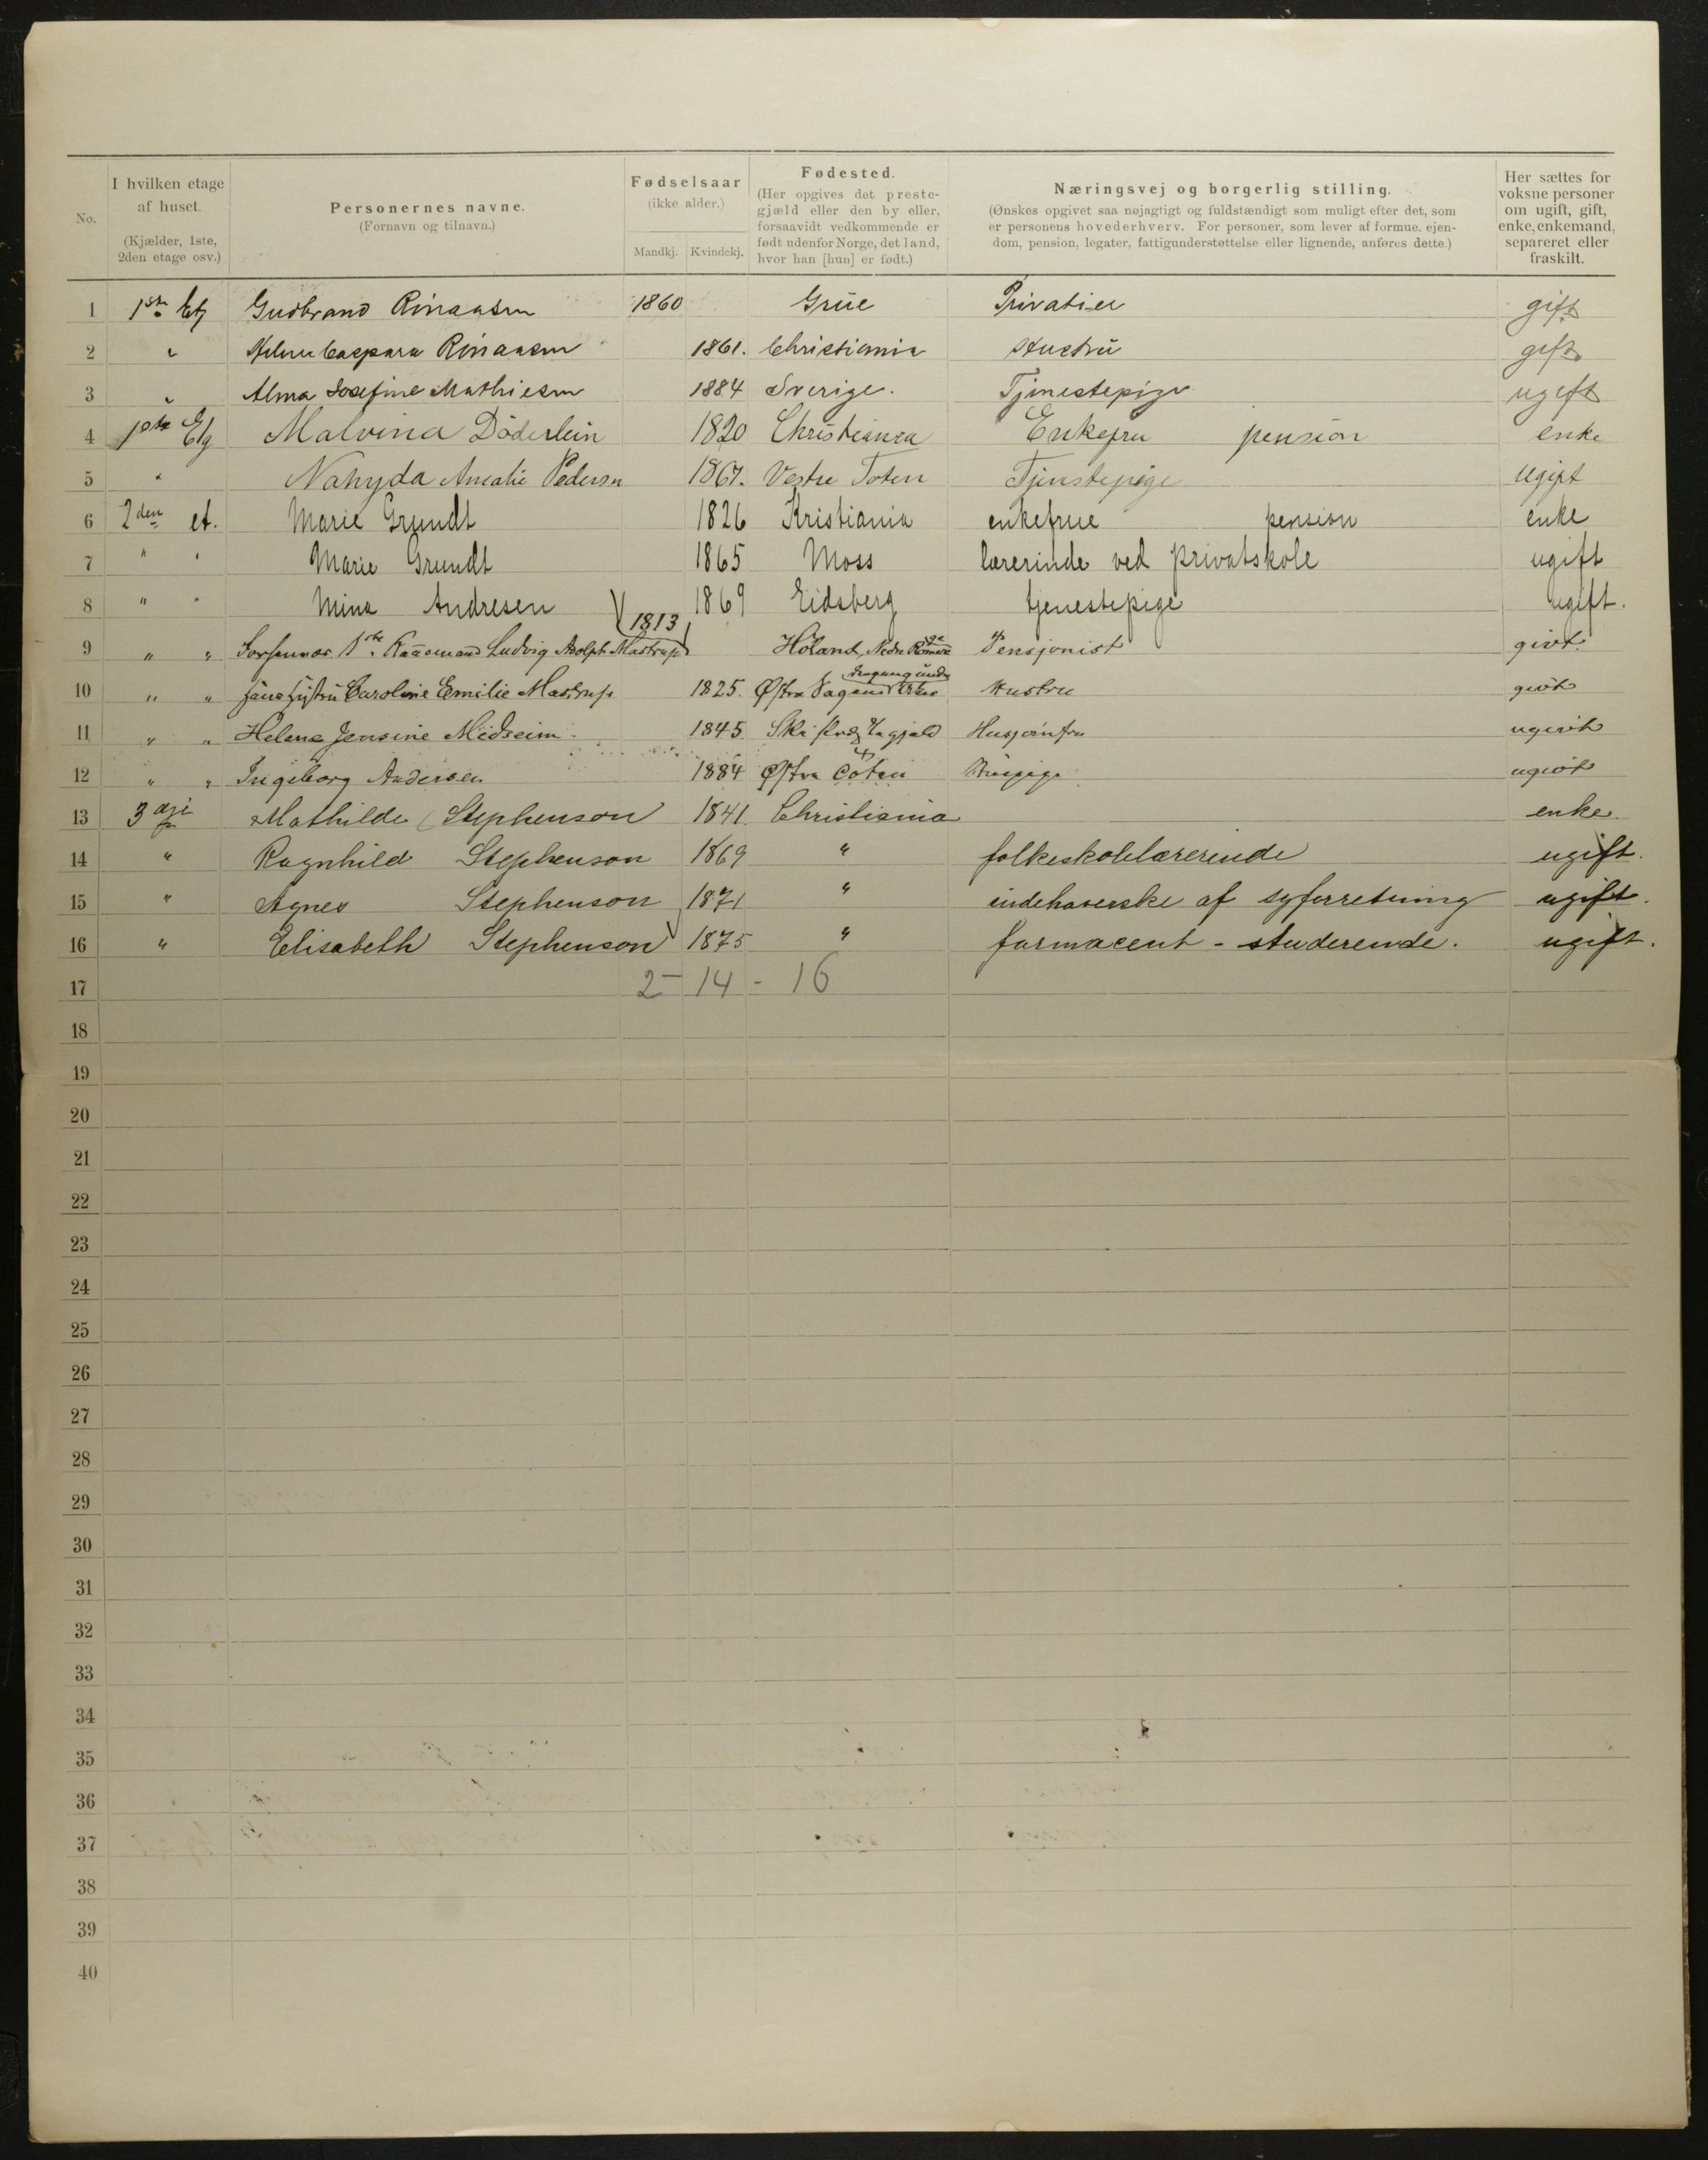 No.
I hvilken etage af huset. (Kjælder, 1ste, 2den etage osv.)
Personernes navne. (Fornavn og tilnavn.)
Fødselsaar (ikke alder.) Mandkj. Kvindekj.
Fødested. (Her opgives det prestegjæld eller den by eller, forsaavidt vedkommende er født udenfor Norge, det land, hvor han [hun] er født.)
Næringsvej og borgerlig stilling. (Ønskes opgivet saa nøjagtigt og fuldstændigt som muligt efter det, som er personens hovederhverv. For personer, som lever af formue, ejendom, pension, legater, fattigunderstøttelse eller lignende, anføres dette.)
Her sættes for voksne personer om ugift, gift, enke, enkemand, separeret eller fraskilt.
1 1ste Etg Gudbrand 1860 Grue Privatier gift
2 " 1861. Christiania Hustru gift
3 " Alma Josefine Mathiesen 1884 Sverige. Tjenestepige ugift
4 1ste Etg Malvina Döderlein 1820 Christiania Enkefru pension enke
5 " Amalie Pedersen 1867. Vestre Toten Tjenstepige ugift
6 2den et. Marie Grundt 1826 Kristiania enkefrue pension enke
7 " " Marie Grundt 1865 Moss lærerinde ved privatskole ugift
8 " " Mina Andresen 1869 Eidsberg tjenestepige ugift.
9 " " Ludvig Adolph Mastrup 1813 Høland, Nedre Pensjonist givt.
10 " " Caroline Emilie Mastrup 1825. Østre Hustru givt
11 " " Helene Jensine 1845 Ski ugivt
12 " " Ingeborg Andersen 1884 Østre Toten ugivt
13 3 Mathilde Stephenson 1841. Christiania enke.
14 " Ragnhild Stephenson 1869 " folkeskolelærerinde ugift.
15 " Agnes Stephenson 1871 " indehaverske af syforretning ugift.
16 " Elisabeth Stephenson 1875 " farmaceut - studerende. ugift.
17 2 - 14 - 16
18
19
20
21
22
23
24
25
26
27
28
29
30
31
32
33
34
35
36
37
38
39
40